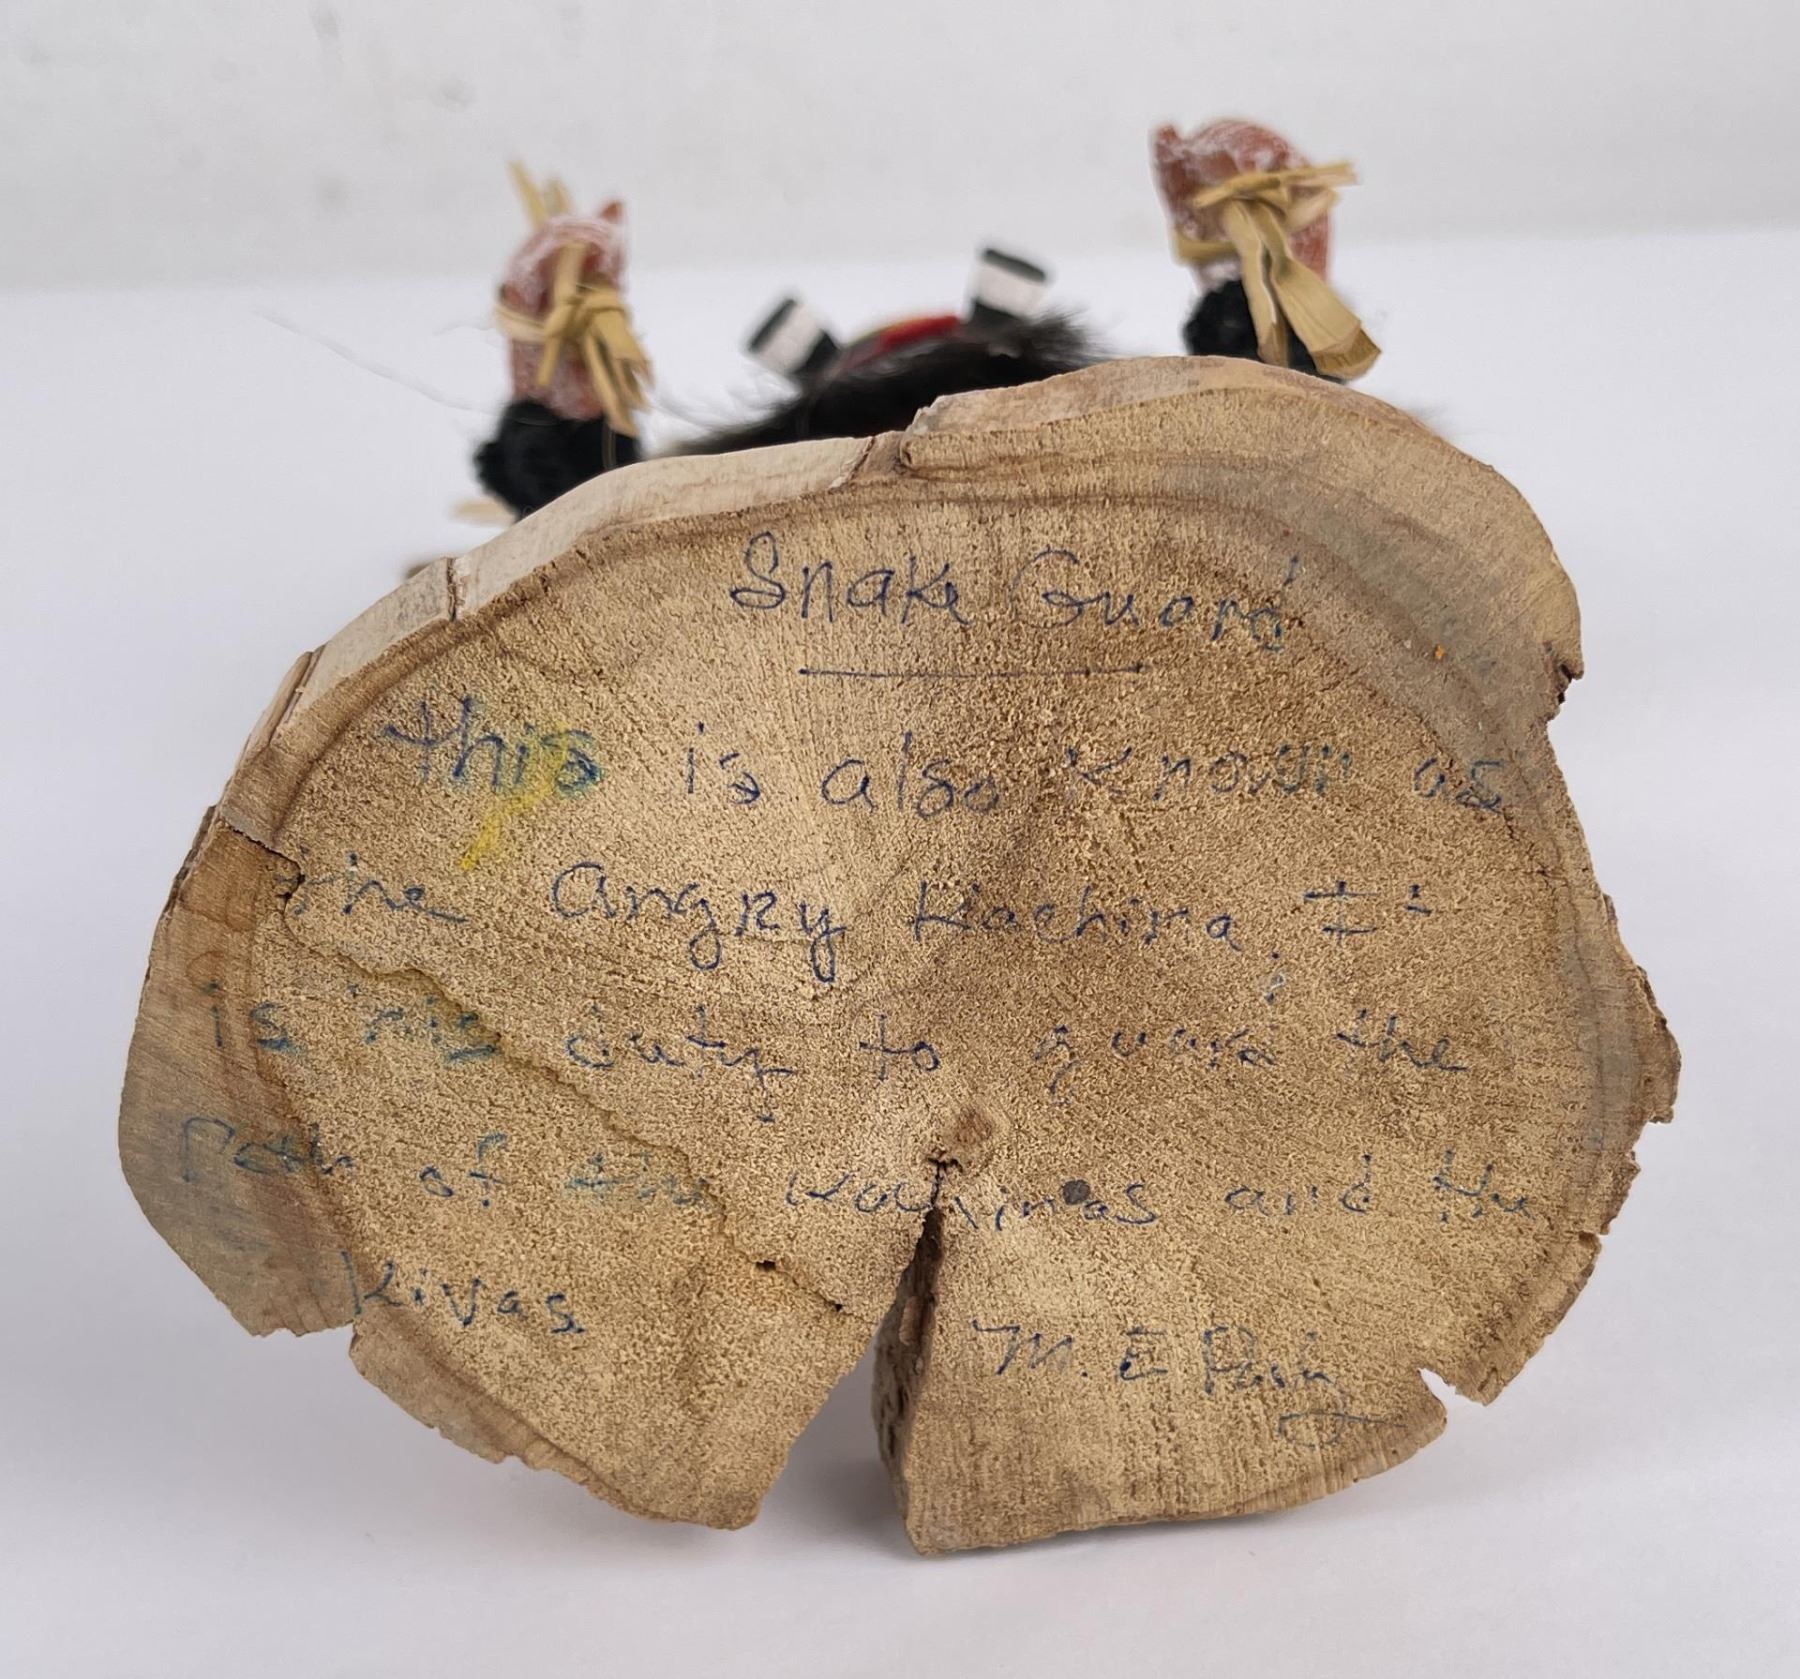 Snake Guard
this is also known as
the Angry Kachina, It
is his duty to guard the
Path of the Kachinas and the
Kivas.
M. E